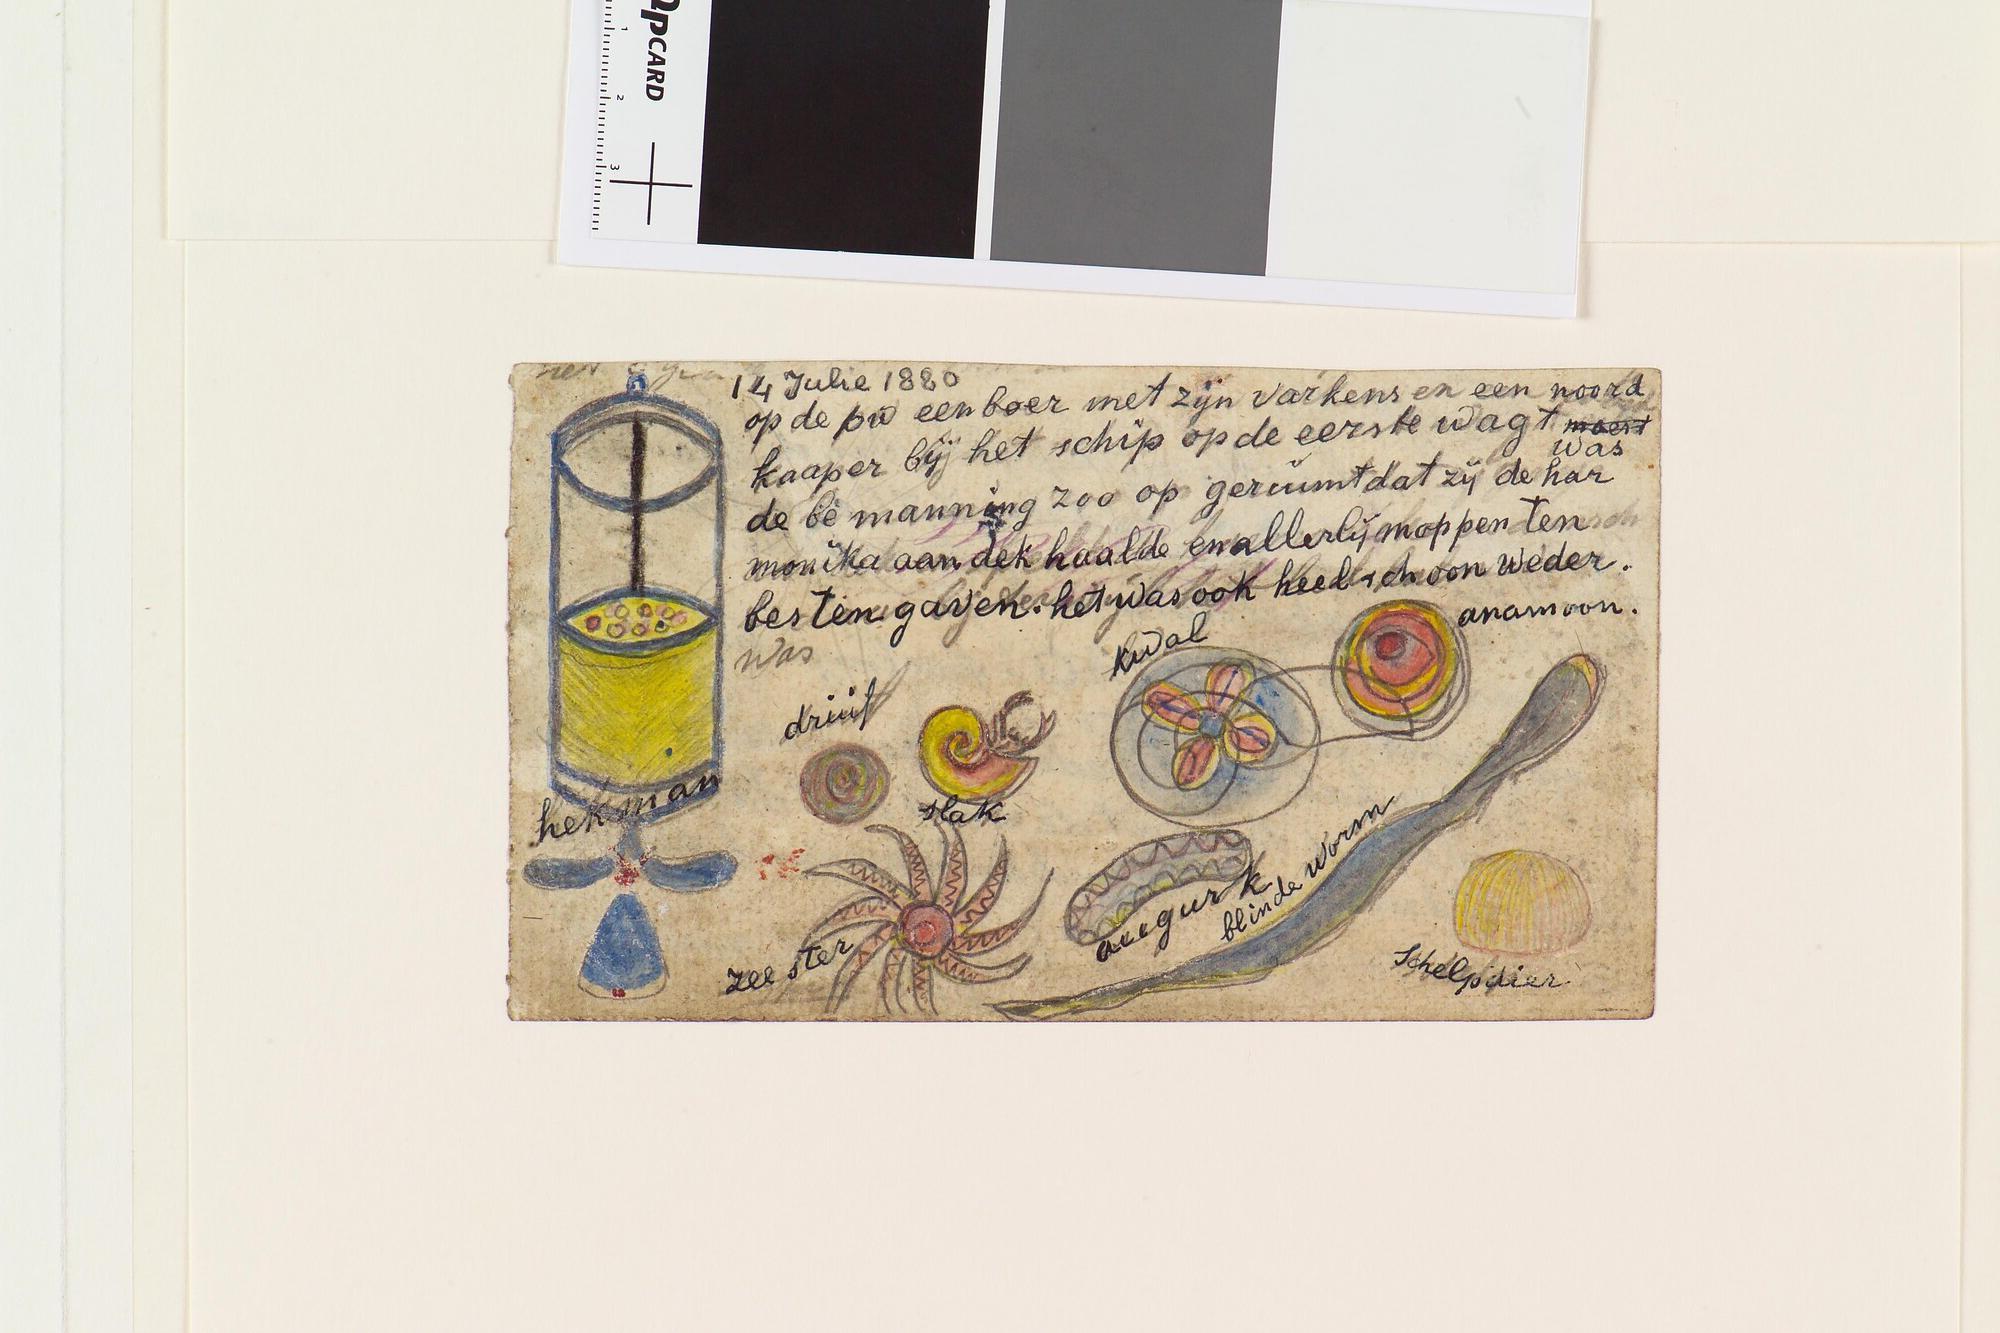 CARD
1
2
3
14 Julie 1880
op de pw een boer met zijn varkens en een noord
kaaper bij het schip op de eerste wagt moest
was
de bemanning zoo op geruimt dat zij de har
monika aan dek haalde en allerlij moppen ten
besten gaven. het was ook heel schoon weder.
was
anamoon.
kwal
druif
slak
hekman
augurk
blinde worm
zee ster
Schelpdier